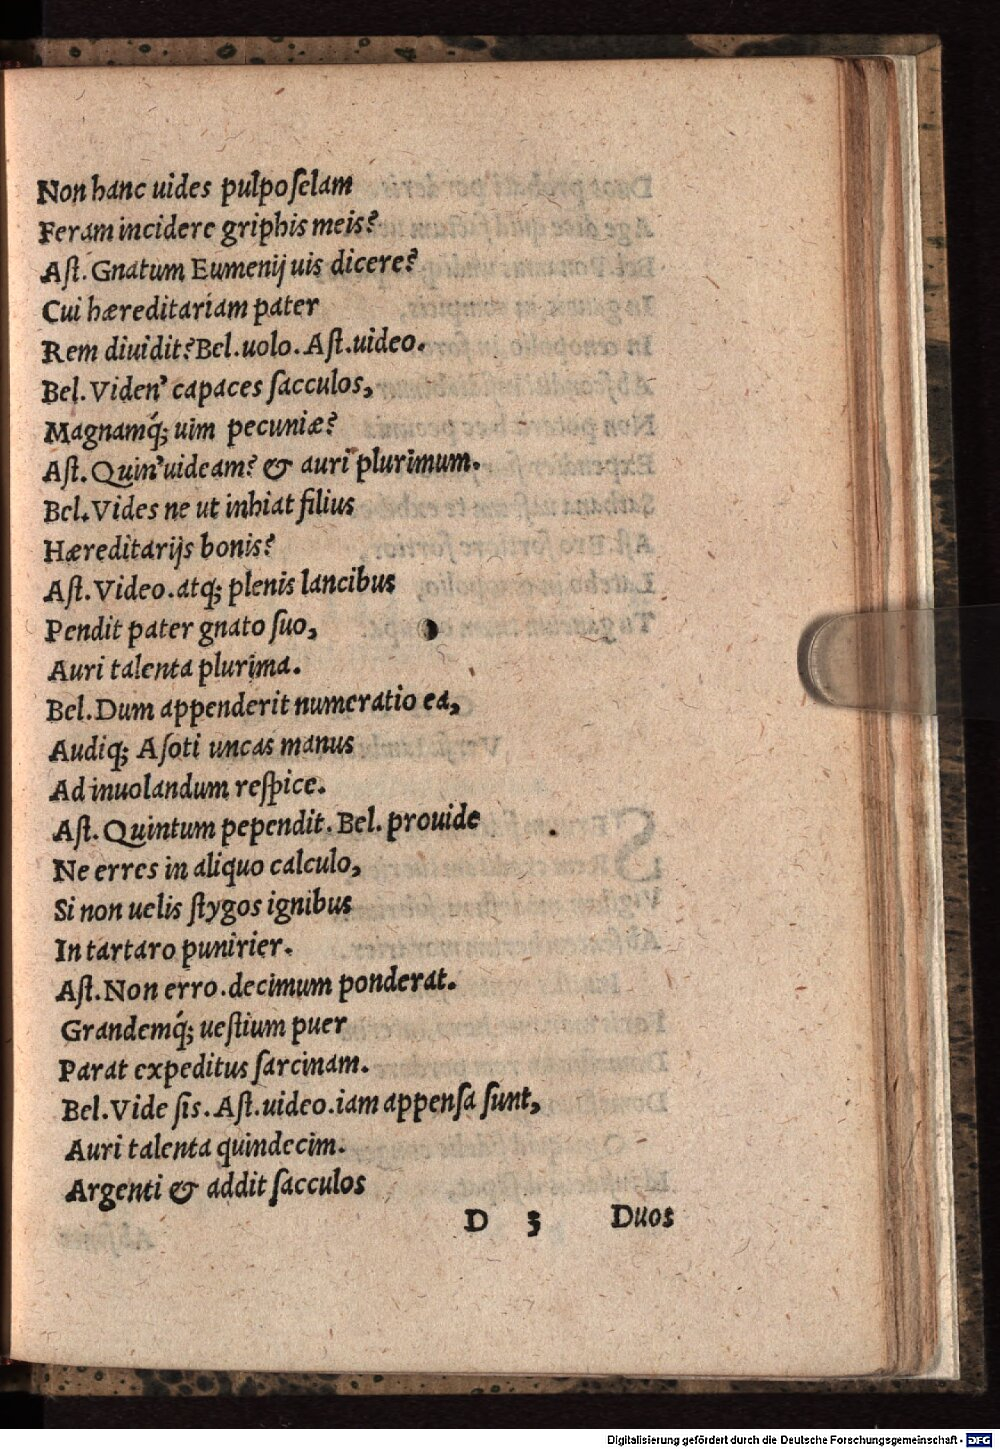 Non hanc uides pulpoſelam
Feram incidere griphis meis?
Aſt. Gnatum Eumenij uis dicere?
Cui hæreditariam pater
Rem diuidit? Bel. uolo. Aſt. uideo.
Bel. Viden' capaces ſacculos,
Magnamq́; uim pecuniæ?
Aſt. Quin' uideam? & auri plurimum.
Bel. Vides ne ut inhiat filius
Hæreditarijs bonis?
Aſt. Video. atq; plenis lancibus
Pendit pater gnato ſuo,
Auri talenta plurima.
Bel. Dum appenderit numeratio ea,
Audiq; Aſoti uncas manus
Ad inuolandum reſpice.
Aſt. Quintum pependit. Bel. prouide
Ne erres in aliquo calculo,
Si non uelis ſtygos ignibus
In tartaro punirier.
Aſt. Non erro. decimum ponderat.
Grandemq́; ueſtium puer
Parat expeditus ſarcinam.
Bel. Vide ſis. Aſt. uideo. iam appenſa ſunt,
Auri talenta quindecim.
Argenti & addit ſacculos
D 3 Duos
Digitalisierung gefördert durch die Deutsche Forschungsgemeinschaft - DFG